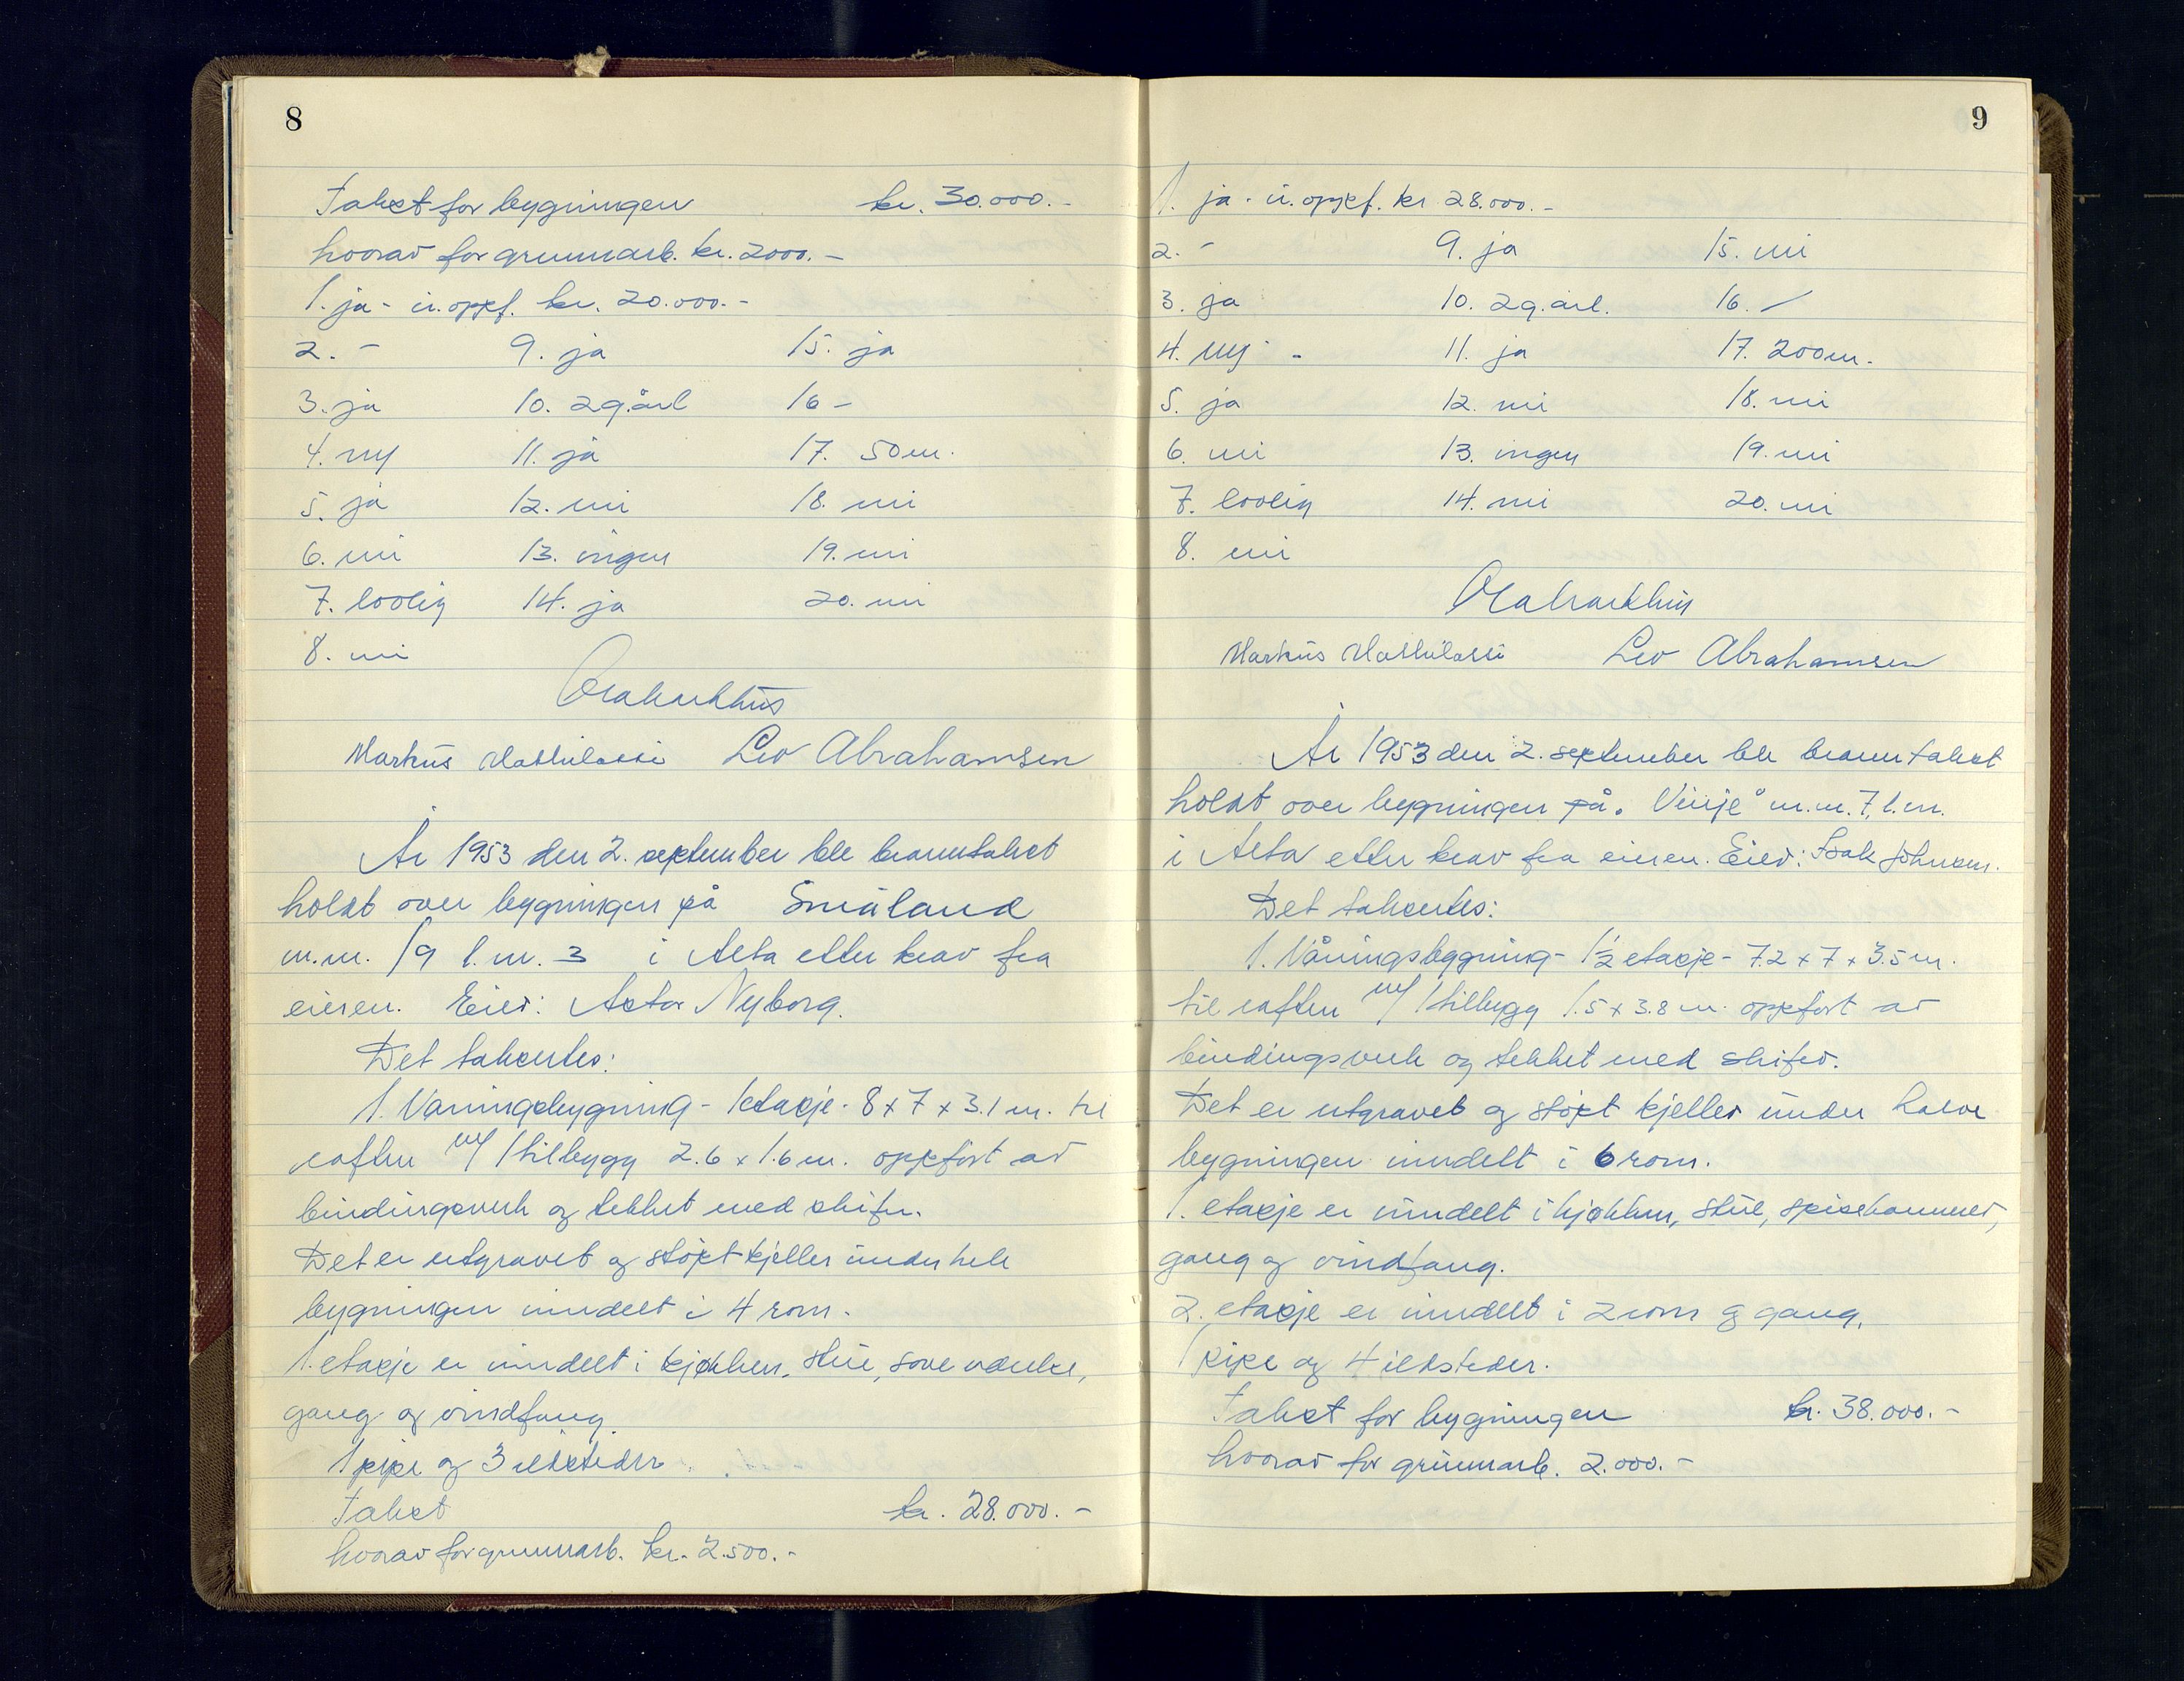 8
Takst for bygningen kr. 30.000.-
hvorav for grunnarb. kr. 2000.-
1. ja - u. oppf. kr. 20.000.-
2. - 9. ja 15. ja
3. ja 10. 2 g. årl 16 -
4. ny 11. ja 17. 50 m.
5. ja 12. nei 18. nei
6. nei 13. ingen 19. nei
7. bolig 14. ja 20. nei
8. nei
Markus Leo Abrahamsen
År 1953 den 2. september ble branntakst
holdt over bygningen på Småland
m.nr. 19 l.nr. 3 i Alta etter krav fra
eieren. Eier: Astor Nyborg.
Det takseres:
1. Våningsbygning - 1 etasje - 8 x 7 x 3.1 m. til
raften m/ 1 tilbygg 2.6 x 1.6 m. oppført av
bindingsverk og tekket med skifer.
Det er utgravet og støpt kjeller under hele
bygningen inndelt i 4 rom.
1. etasje er inndelt i kjøkken, stue, soveværelse,
gang og vindfang.
1 pipe og 3 ildsteder
Takst kr. 28.000.-
hvorav for grunnarb. kr. 2.500.-
9
1. ja - u. oppf. kr 28.000.-
2. - 9. ja 15. nei
3. ja 10. 2 g. årl. 16. -
4. ny - 11. ja 17. 200 m.
5. ja 12. nei 18. nei
6. nei 13. ingen 19. nei
7. bolig 14. nei 20. nei
8. nei
Markus Leo Abrahamsen
År 1953 den 2. september ble branntakst
holdt over bygningen på "Vinje" m.nr. 7, l.nr.
i Alta etter krav fra eieren. Eier: Isak Johnsen.
Det takseres:
1. Våningsbygning - 1 1/2 etasje - 7.2 x 7 x 3.5 m.
til raften m/ 1 tilbygg 1.5 x 3.8 m. oppført av
bindingsverk og tekket med skifer.
Det er utgravet og støpt kjeller under halve
bygningen inndelt i 6 rom.
1. etasje er inndelt i kjøkken, stue, spisekammer,
gang og vindfang.
2. etasje er inndelt i 2 rom og gang.
1 pipe og 4 ildsteder.
Takst for bygningen kr. 38.000.-
hvorav for grunnarb. 2.000.-